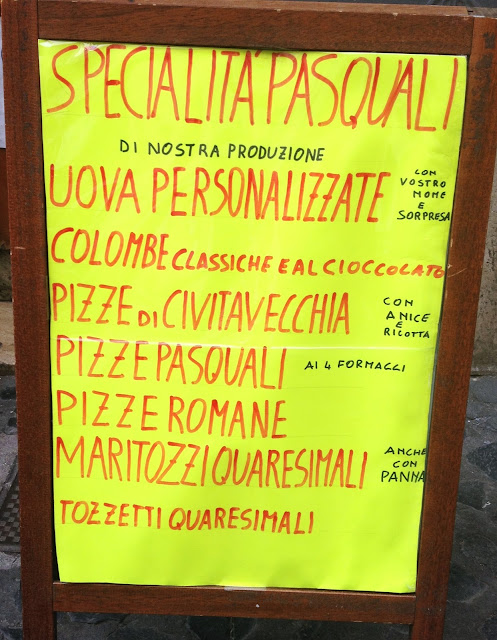 SPECIALITÁ PASQUALI
DI NOSTRA PRODUZIONE
UOVA PERSONALIZZATE CON VOSTRO NOME E SORPRESA
COLOMBE CLASSICHE E AL CIOCCOLATO
PIZZE DI CIVITAVECCHIA CON ANICE E RICOTTA
PIZZE PASQUALI AI 4 FORMAGGI
PIZZE ROMANE
MARITOZZI QUARESIMALI ANCHE CON PANNA
TOZZETTI QUARESIMALI